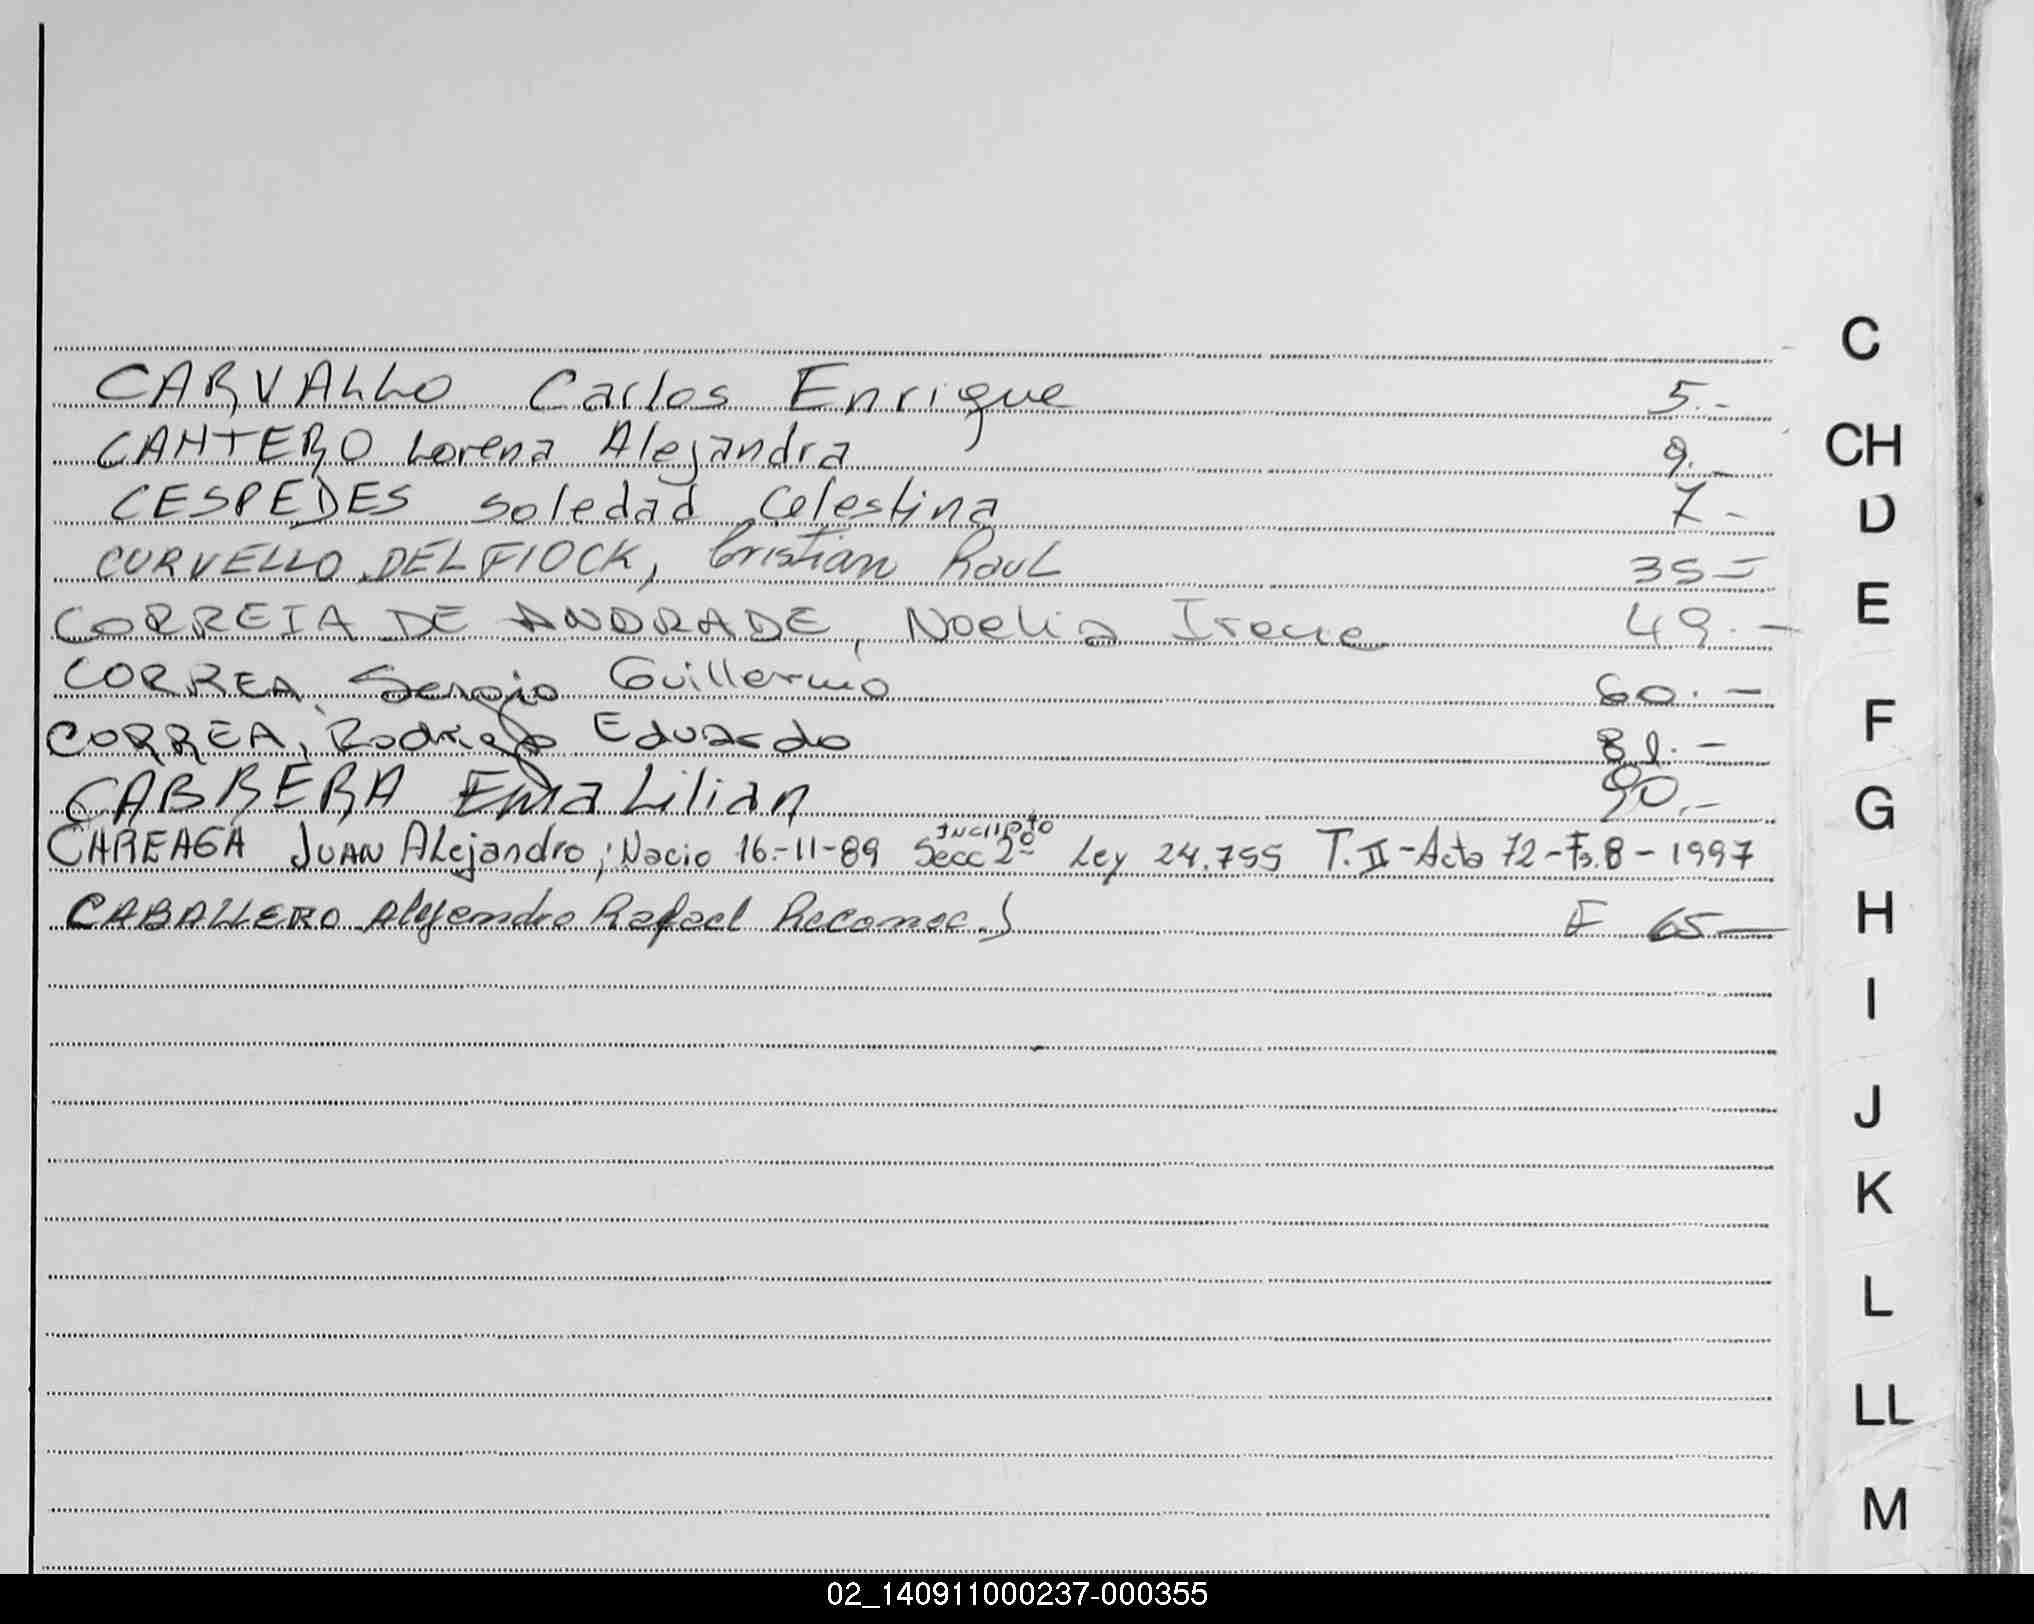 C
CARVALLO Carlos Enrique 5.-
CH
CANTERO Lorena Alejandra 9.-
CESPEDES Soledad Celestina 7-
D
CORVELLO DELFIOCK, Cristian Raul 35=
E
CORREIA DE ANDRADE, Noelia Irene 49.-
CORREA, Sergio Guillermo 60.-
F
CORREA, Rodrigo Eduardo 81.-
CABRERA Ema Lilian 90.-
G
CAREAGA Juan Alejandro; Nacio 16-11-89 Inscripto Secc 2º Ley 24.755 T. II-Acta 72-Fs.8-1997
CABALLERO Alejandro Rafael Reconoc.) F 65-
H
I
J
K
L
LL
M
02_140911000237-000355